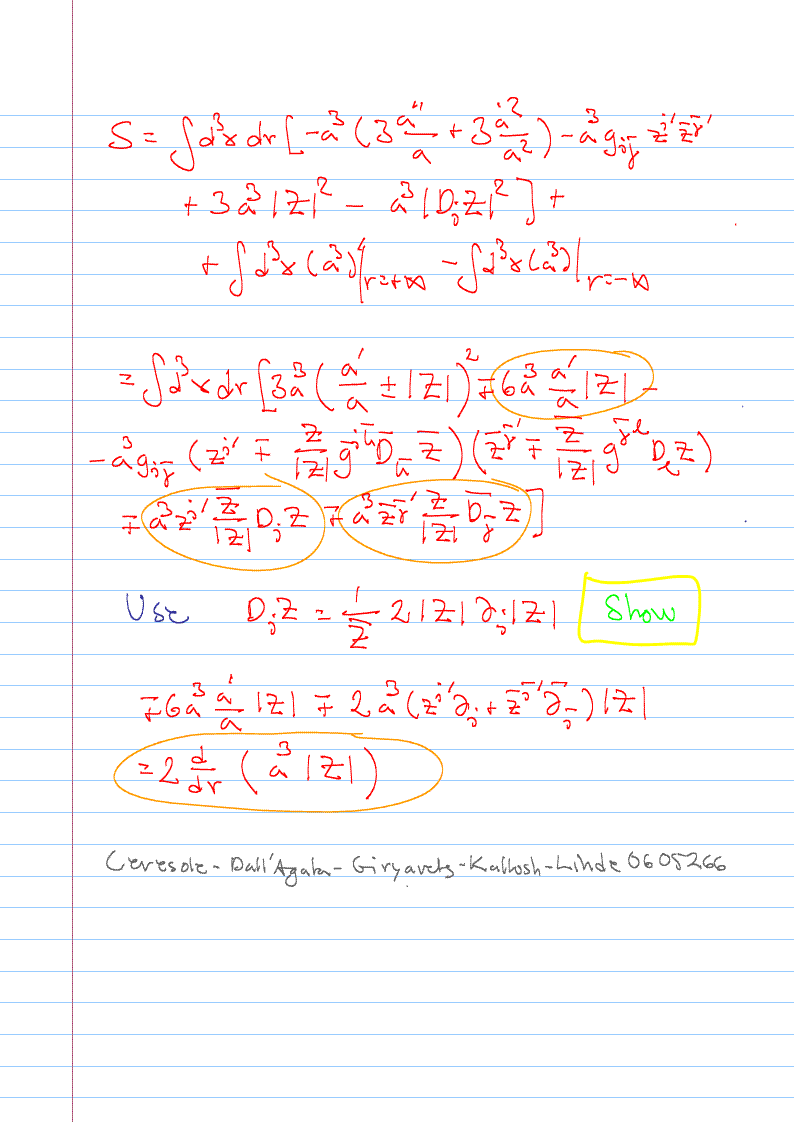 S = ∫d³x dr [-a³(3 a''/a + 3 a'²/a²) - a³ g_{ij̄} z^{i}' z̄^{j̄}'
+ 3a³|Z|² - a³|D_i Z|²] +
+ ∫d³x (a³)'|_{r=+∞} - ∫d³x (a³)'|_{r=-∞}
= ∫d³x dr [3a³(a'/a ± |Z|)² ∓ 6a³ a'/a |Z| -
- a³ g_{ij̄} (z^{i}' ∓ Z/|Z| g^{i k̄} D̄_{k̄} Z̄)(z̄^{j̄}' ∓ Z̄/|Z| g^{j̄ l} D_l Z)
∓ a³ z^{j}' Z̄/|Z| D_j Z ∓ a³ z̄^{j̄}' Z/|Z| D̄_{j̄} Z̄]
Use D_i Z = 1/Z̄ 2|Z| ∂_i|Z| Show
∓6a³ a'/a |Z| ∓ 2a³(z^{i}' ∂_i + z̄^{ī}' ∂̄_{ī})|Z|
= 2 d/dr (a³|Z|)
Ceresole-Dall'Agata-Giryavets-Kallosh-Linde 0605266